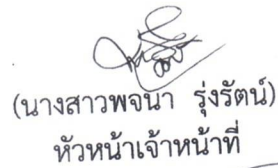 (นางสาวพจนา รุ่งรัตน์)
หัวหน้าเจ้าหน้าที่